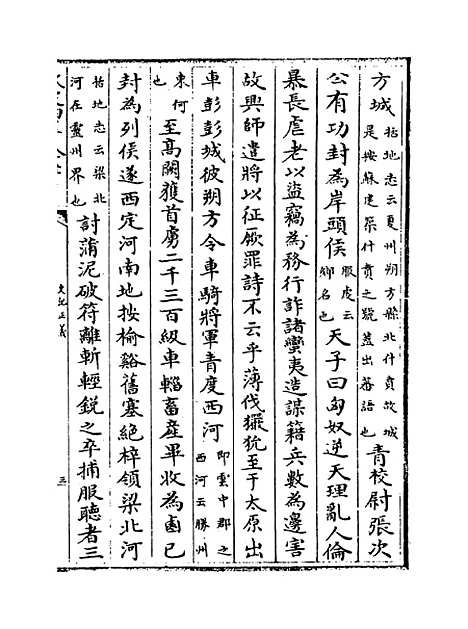 方城括地志云夏州朔方縣北什賁故城是按蘇建築什賁之號蓋出蕃語也青校尉張次
公有功封為岸頭侯服虔云鄉名也天子曰匈奴逆天理亂人倫
暴長虐老以盜竊為務行詐諸蠻夷造謀籍兵數為邊害
故興師遣將以征厥罪詩不云乎薄伐玁狁至于太原出
車彭彭城彼朔方令車騎將軍青度西河即雲中郡之西河云勝州
東河也至高闕獲首虜二千三百級車輜畜產畢收為鹵已
封為列侯遂西定河南地按榆谿舊塞絕梓領梁北河
括地志云梁北河在靈州界也討蒲泥破符離斬輕銳之卒捕服聽者三
史記正義
三